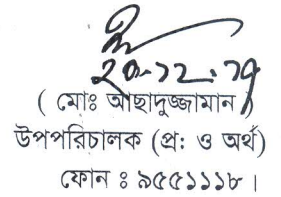 ২০-১২-১৭
( মোঃ আছাদুজ্জামান )
উপপরিচালক (প্র: ও অর্থ)
ফোন ঃ ৯৫৫১১১৮ ।